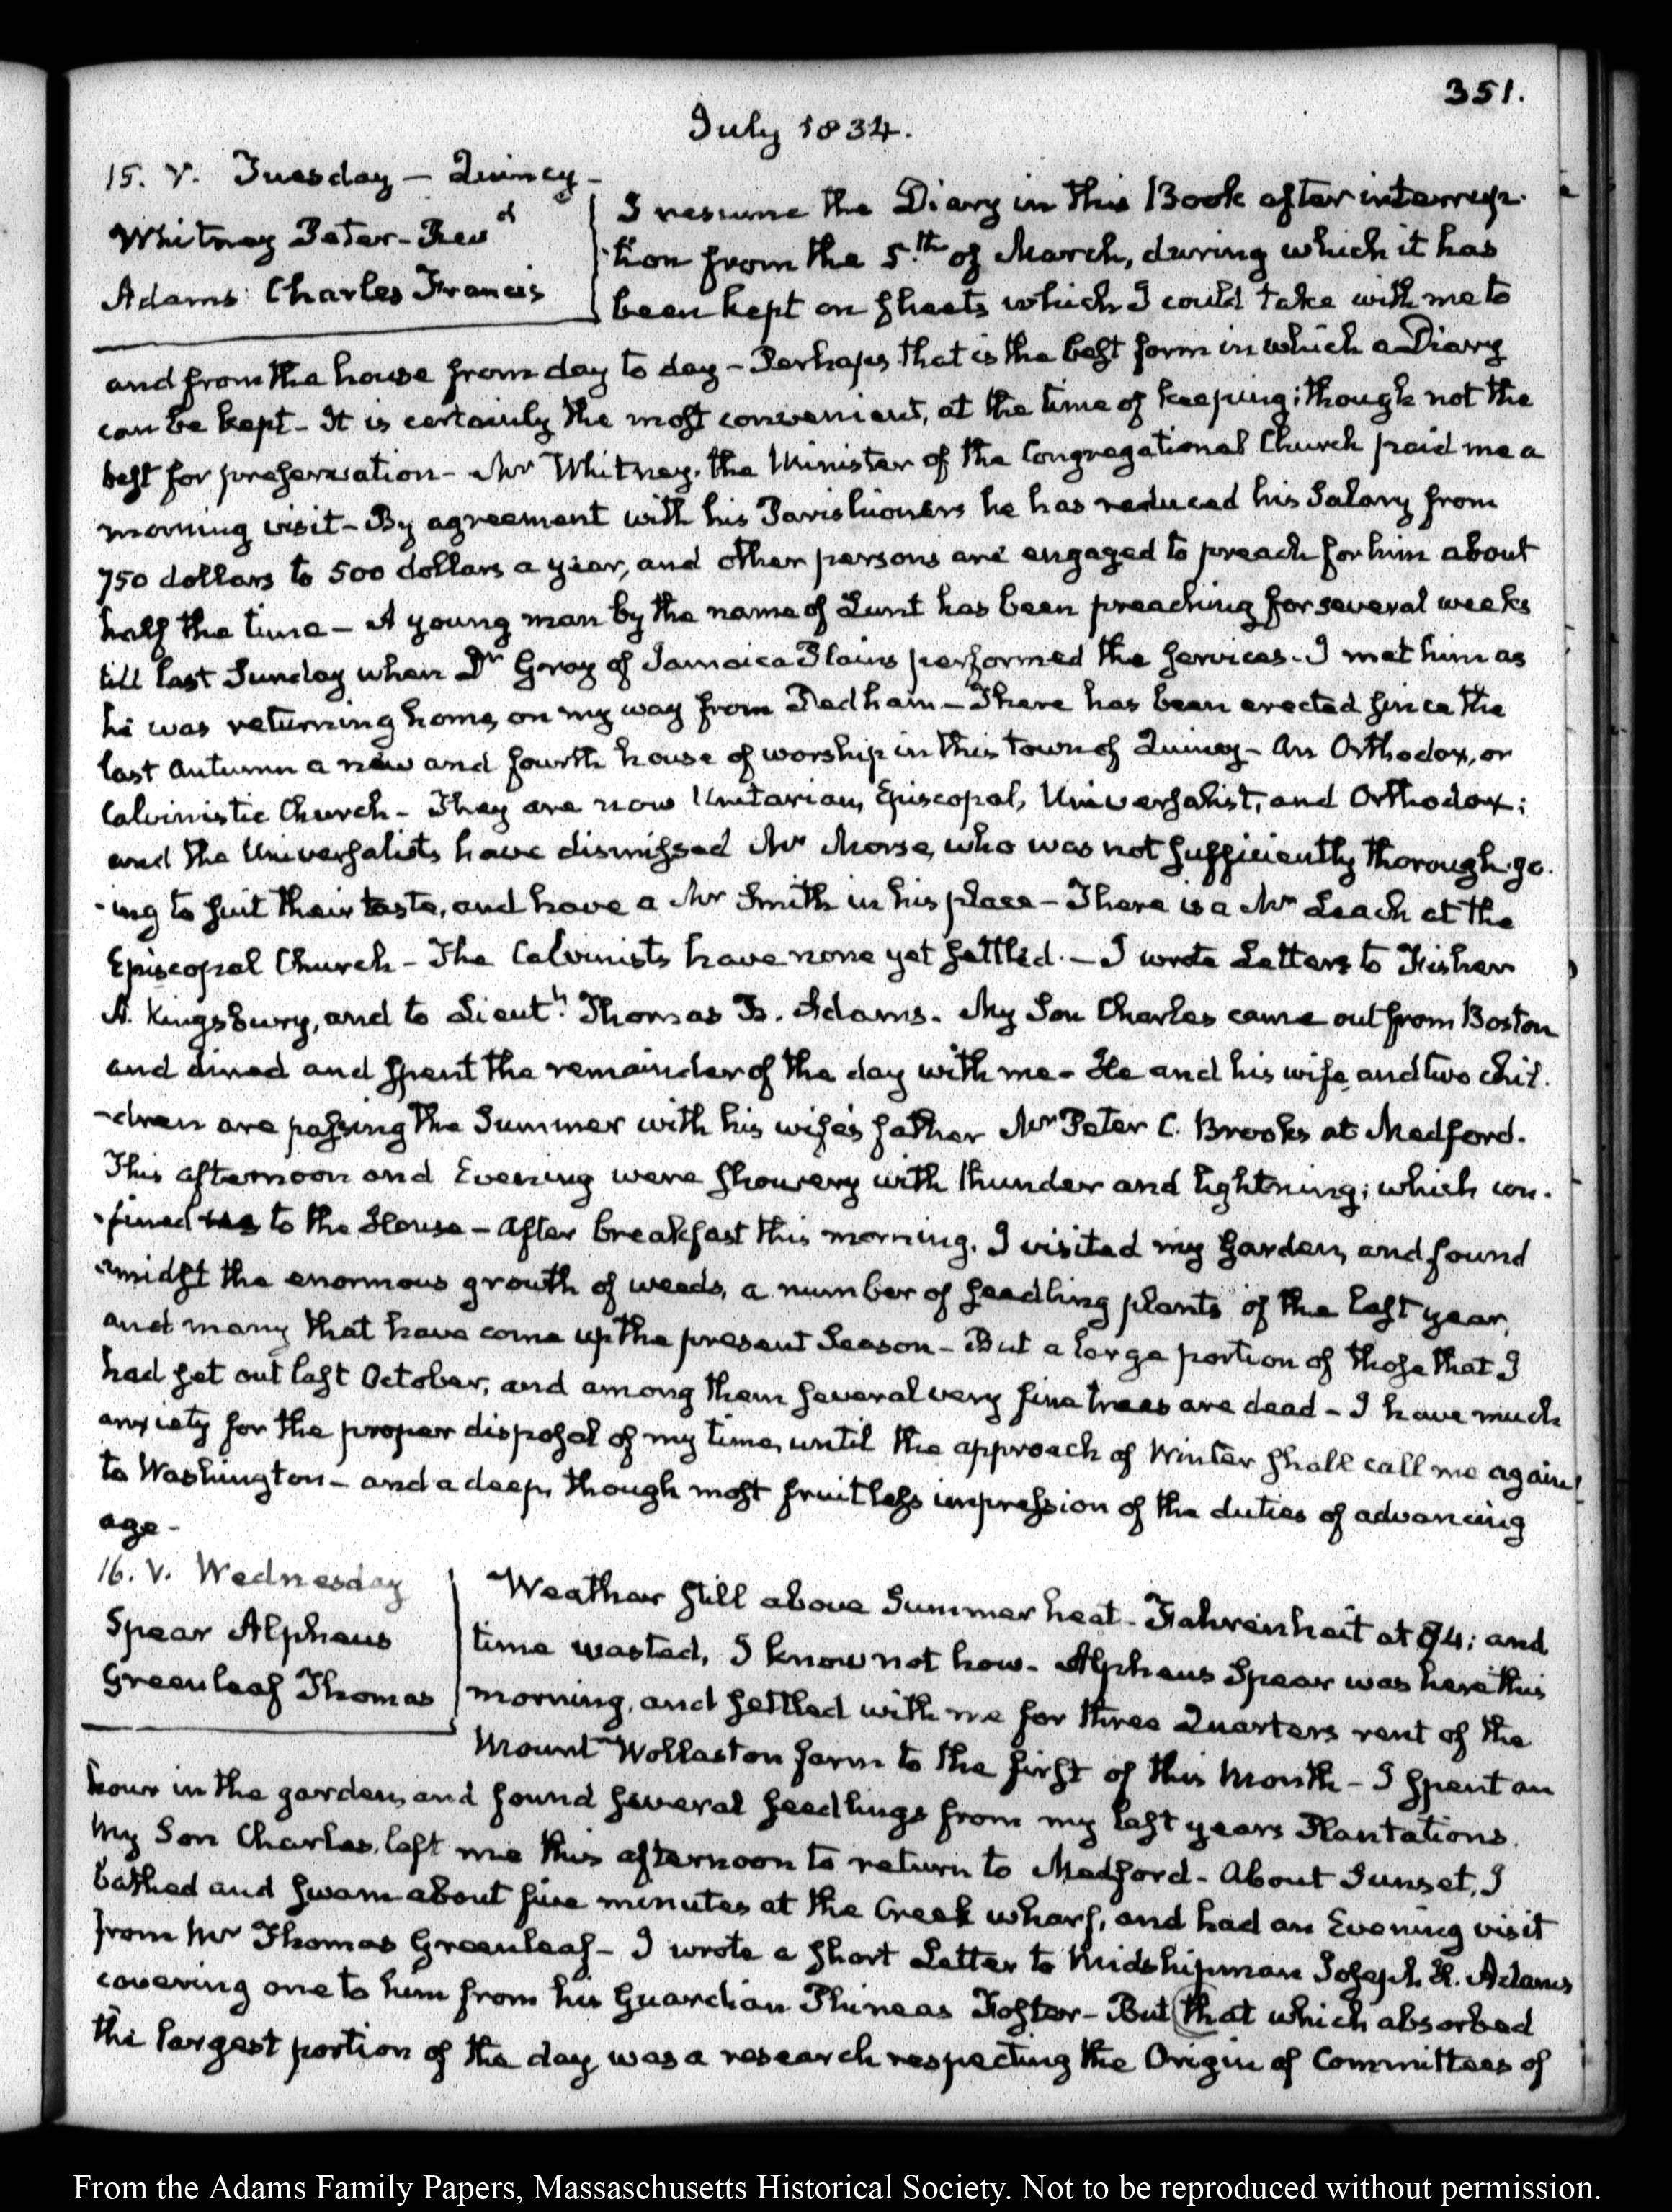 351.
July 1834.
15. V. Tuesday – Quincy –
Whitney Peter – Revd
Adams Charles Francis
I resume the Diary in this Book after interrup-
-tion from the 5.th of March, during which it has
been kept on sheets which I could take with me to
and from the house from day to day – Perhaps that is the best form in which a Diary
can be kept – It is certainly the most convenient, at the time of keeping; though not the
best for preservation – Mr Whitney, the Minister of the Congregational Church paid me a
morning visit – By agreement with his Parishioners he has reduced his Salary from
750 dollars to 500 dollars a year, and other persons are engaged to preach for him about
half the time – A young man by the name of Lunt has been preaching for several weeks
till last Sunday when Dr Gray of Jamaica Plains performed the services – I met him as
he was returning home, on my way from Dedham – There has been erected since the
last Autumn a new and fourth house of worship in this town of Quincy – An Orthodox, or
Calvinistic Church – They are now Unitarian, Episcopal, Universalist, and Orthodox;
and the Universalists have dismissed Mr Morse, who was not sufficiently thorough-go-
-ing to suit their taste, and have a Mr Smith in his place – There is a Mr Leach at the
Episcopal Church – The Calvinists have none yet settled. – I wrote Letters to Fisher
A. Kingsbury, and to Lieutt. Thomas B. Adams. My Son Charles came out from Boston
and dined and spent the remainder of the day with me – He and his wife and two chil-
-dren are passing the Summer with his wife's father Mr Peter C. Brooks at Medford.
This afternoon and Evening were showery with thunder and lightning; which con-
-fined us to the House – After breakfast this morning, I visited my Garden, and found
amidst the enormous growth of weeds, a number of seedling plants of the last year,
and many that have come up the present Season – But a large portion of those that I
had set out last October, and among them several very fine trees are dead – I have much
anxiety for the proper disposal of my time, until the approach of Winter shall call me again
to Washington – and a deep, though most fruitless impression of the duties of advancing
age –
16. V. Wednesday
Spear Alpheus
Greenleaf Thomas
Weather still above Summer heat – Fahrenheit at 84; and
time wasted, I know not how – Alpheus Spear was here this
morning, and settled with me for three Quarters rent of the
Mount Wollaston farm to the first of this Month – I spent an
hour in the garden, and found several seedlings from my last years Plantations.
My Son Charles, left me this afternoon to return to Medford – About Sunset, I
bathed and swam about five minutes at the Creek wharf, and had an Evening visit
from Mr Thomas Greenleaf – I wrote a short Letter to Midshipman Joseph H. Adams
covering one to him from his Guardian Phineas Foster – But that which absorbed
the largest portion of the day was a research respecting the Origin of Committees of
From the Adams Family Papers, Massachusetts Historical Society. Not to be reproduced without permission.